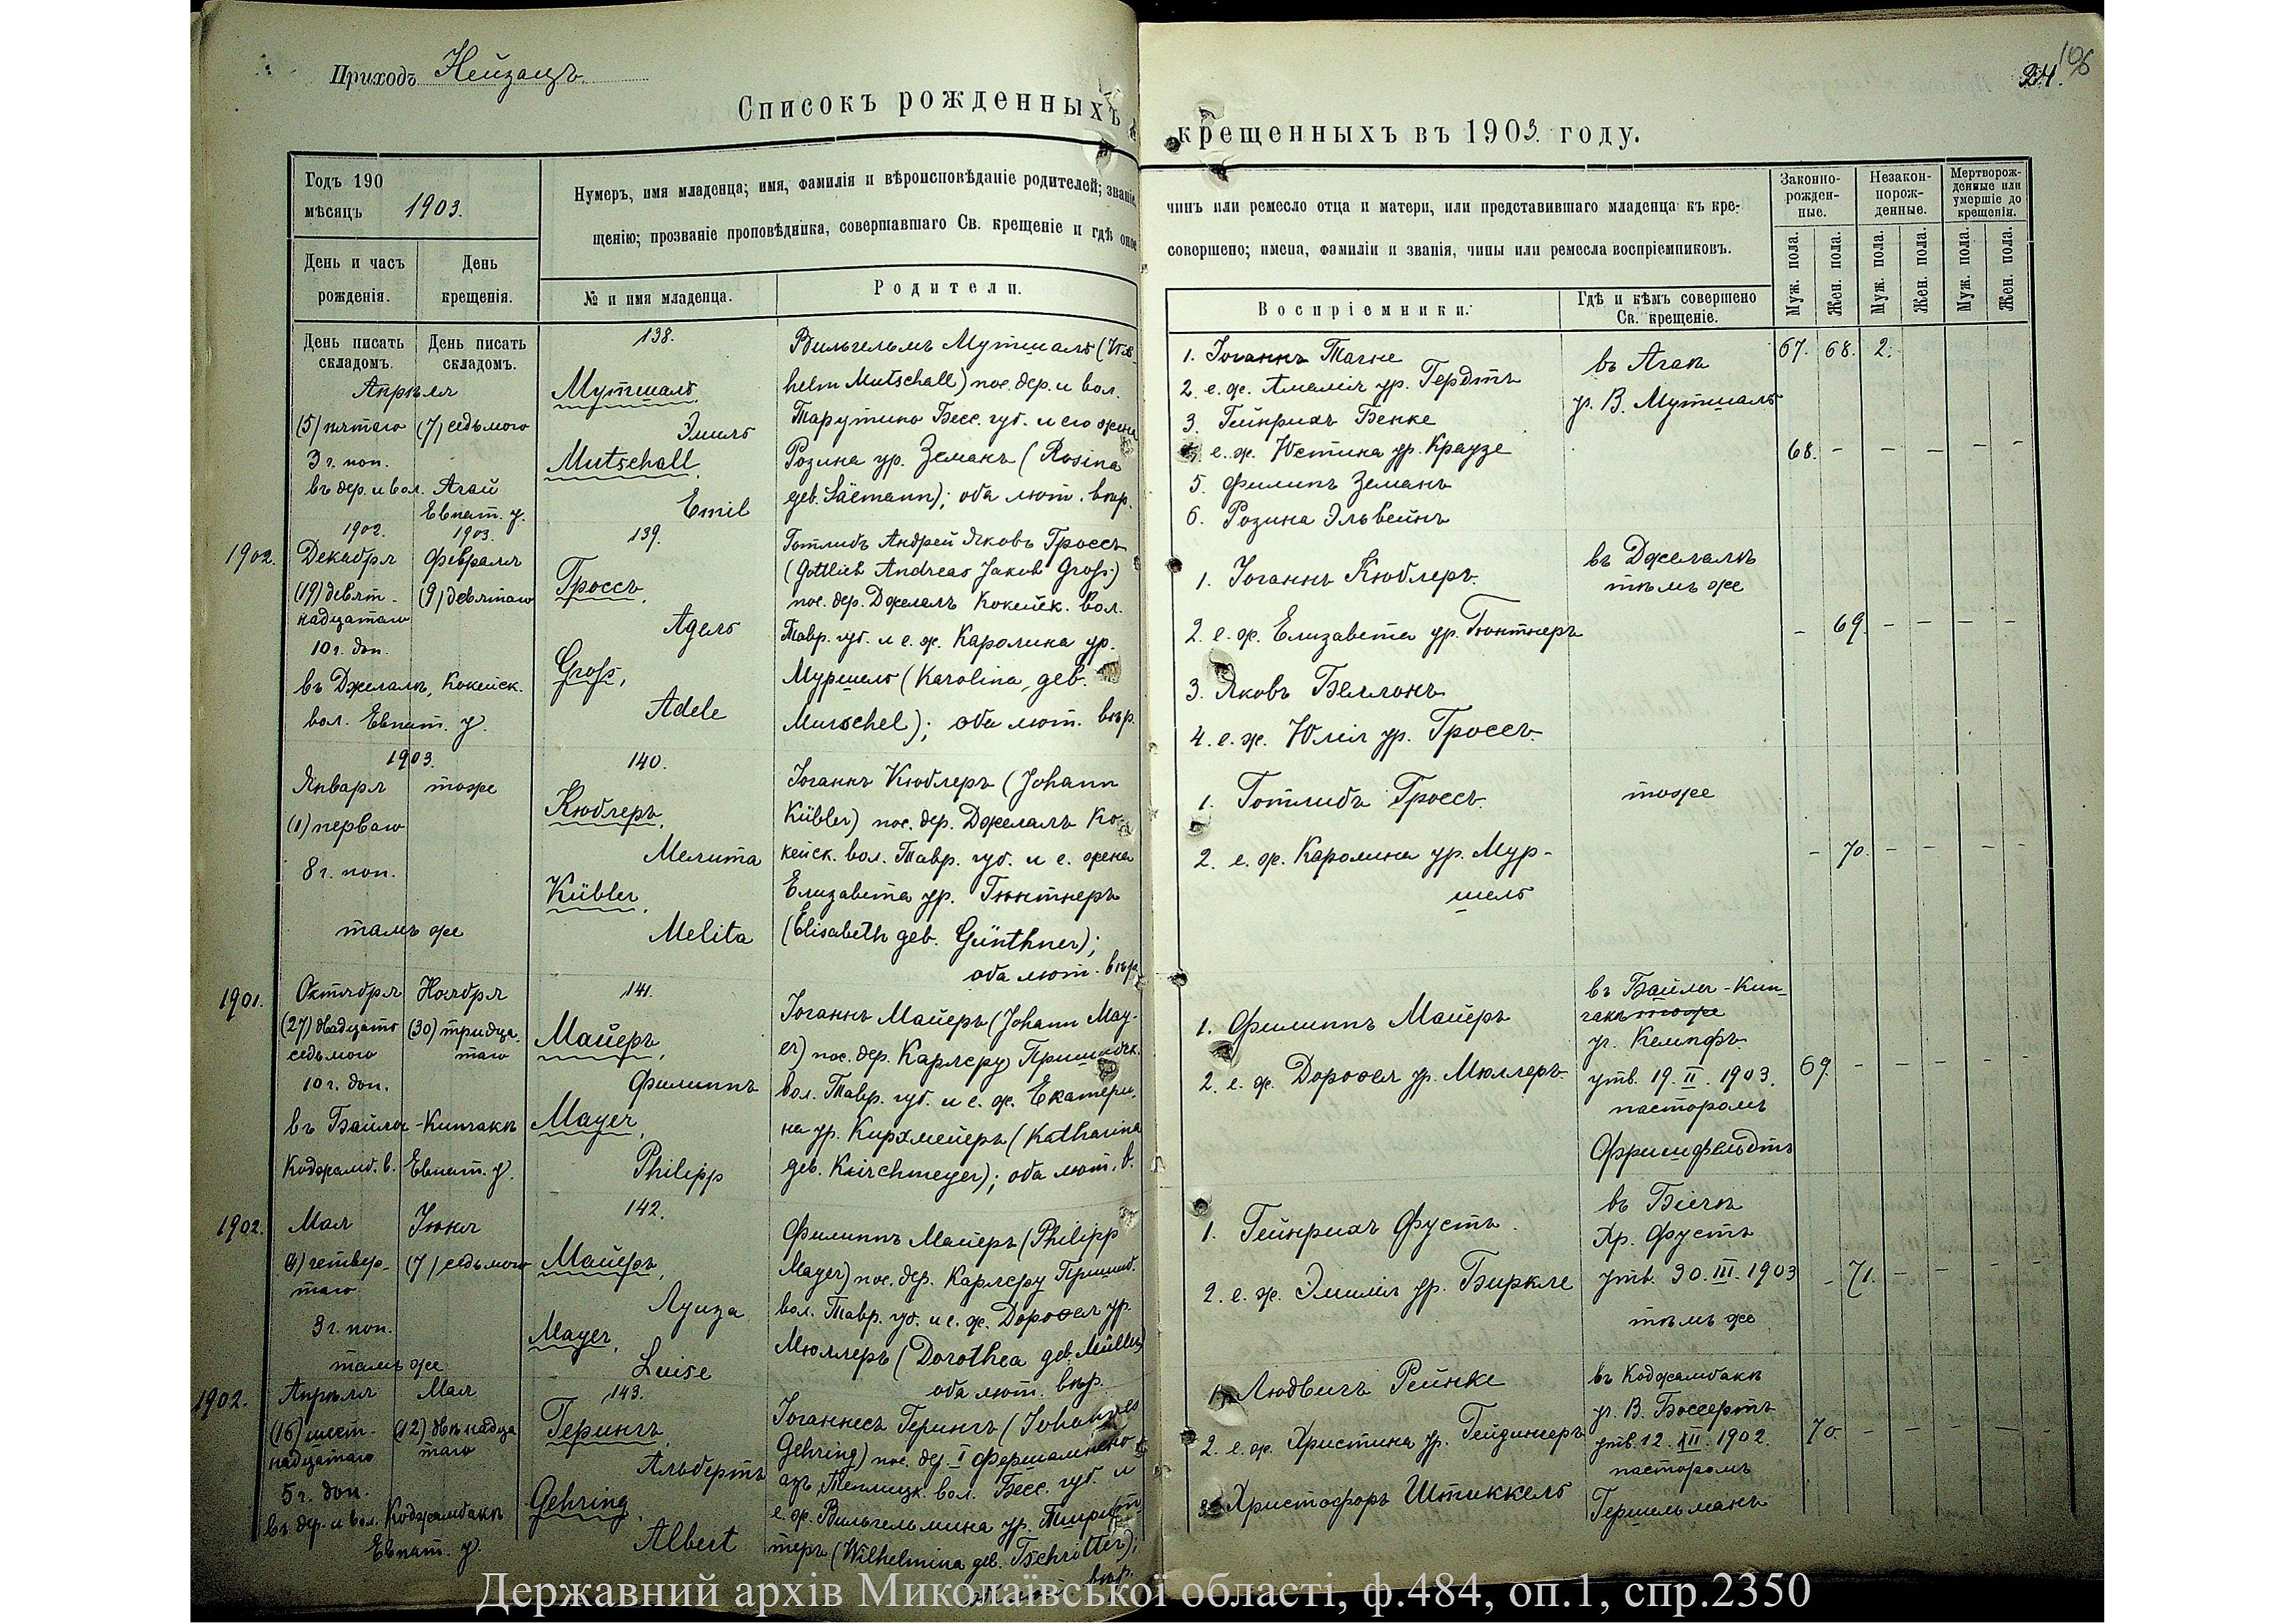 Приходъ Нейзацъ.
Списокъ рожденныхъ
Годъ 190
мѣсяцъ 1903.
Нумеръ, имя младенца; имя, фамилія и вѣроисповѣданіе родителей; званіе,
щенію; прозваніе проповѣдника, совершавшаго Св. крещеніе и гдѣ оное
День и часъ рожденія.
День крещенія.
№ и имя младенца.
Родители.
День писать складомъ.
День писать складомъ.
Апрѣля
(5) пятаго
(7) седьмого
3 г. поп.
въ дер. и вол. Агай
Евпат. у.
138.
Мутшалъ,
Эмилъ
Mutschall,
Emil
Вильгельмъ Мутшалъ (Wil-
helm Mutschall) пос. дер. и вол.
Тарутино Бесс. губ. и его жена
Розина ур. Земанъ (Rosina
geb. Säemann); оба лют. вѣр.
1902.
1902.
1903.
Декабря
Февраля
(19) девят-
надцатаго
(9) девятаго
10 г. доп.
въ Джелалѣ, Кокейск.
вол. Евпат. у.
139.
Гроссъ,
Адель
Groß,
Adele
Готлибъ Андрей Яковъ Гроссъ
(Gottlieb Andreas Jakob Groß)
пос. дер. Джелалъ Кокейск. вол.
Тавр. губ. и е. ж. Каролина ур.
Муршель (Karolina geb.
Murschel); оба лют. вѣр.
1903.
Января
тоже
(1) перваго
8 г. поп.
тамъ же
140.
Кюблеръ,
Мелита
Kübler,
Melita
Іоганнъ Кюблеръ (Johann
Kübler) пос. дер. Джелалъ Ко-
кейск. вол. Тавр. губ. и е. жена
Елизавета ур. Гюнтнеръ
(Elisabeth geb. Günthner);
оба лют. вѣр.
1901.
Октября
Ноября
(27) двадцать
седьмого
(30) тридца-
таго
10 г. доп.
въ Байлы-Кипчакѣ
Коджамб. в. Евпат. у.
141.
Майеръ,
Филиппъ
Mayer,
Philipp
Іоганнъ Майеръ (Johann May-
er) пос. дер. Карлсру Пришибск.
вол. Тавр. губ. и е. ж. Екатери-
на ур. Кирхмейеръ (Katharina
geb. Kirchmeyer); оба лют. в.
1902.
Мая
Іюня
(4) четвер-
таго
(7) седьмого
3 г. поп.
тамъ же
142.
Майеръ,
Луиза
Mayer,
Luise
Филиппъ Майеръ (Philipp
Mayer) пос. дер. Карлсру Пришиб.
вол. Тавр. губ. и е. ж. Доротея ур.
Мюллеръ (Dorothea geb. Müller)
оба лют. вѣр.
1902.
Апрѣля
Мая
(16) шест-
надцатаго
(12) двѣнадца
таго
5 г. доп.
въ дер. и вол. Коджамбакѣ
Евпат. у.
143.
Герингъ,
Альбертъ
Gehring,
Albert
Іоганнесъ Герингъ (Johannes
Gehring) пос. дер. I Фершампено-
азъ, Теплицк. вол. Бесс. губ. и
е. ж. Вильгельмина ур.
теръ (Wilhelmina geb. Tschritter);
вѣр.
106
24.
крещенныхъ въ 1903 году.
чинъ или ремесло отца и матери, или представившаго младенца къ кре-
совершено; имена, фамиліи и званія, чины или ремесла воспріемниковъ.
Воспріемники.
Гдѣ и кѣмъ совершено Св. крещеніе.
Законно-рожден-ные.
Незакон-норож-денные.
Мертворож-денные или умершіе до крещенія.
Муж. пола.
Жен. пола.
Муж. пола.
Жен. пола.
Муж. пола.
Жен. пола.
67. 68. 2.
1. Іоганнъ Тагне
2. е. ж. Амалія ур. Гердтъ
3. Гейнрихъ Бенке
4. е. ж. Юстина ур. Краузе
5. Филипъ Земанъ
6. Розина Эльвейнъ
въ Агаѣ
уч. В. Мутшалъ
68. - - - - -
1. Іоганнъ Кюблеръ.
2. е. ж. Елизавета ур. Гюнтнеръ
3. Яковъ Беллонъ
4. е. ж. Юлія ур. Гроссъ.
въ Джелалѣ
тѣмъ же
- 69. - - - -
1. Готлибъ Гроссъ.
2. е. ж. Каролина ур. Мур-
шель
тоже
- 70. - - - -
1. Филиппъ Майеръ
2. е. ж. Доротея ур. Мюллеръ.
въ Байлы-Кип-
чакѣ тоже
уч. Кемпфъ.
утв. 19. II. 1903.
пасторомъ
Фришфельдтъ
69. - - - - -
1. Гейнрихъ Фустъ.
2. е. ж. Эмилія ур. Биркле
въ Біечѣ
Хр. Фустъ
утв. 30. III. 1903
тѣмъ же
- 71. - - - -
1. Людвигъ Рейнке
2. е. ж. Христина ур. Гейдингеръ
3. Христофоръ Штиккель
въ Коджамбакѣ
уч. В. Боссертъ
утв. 12. XII. 1902.
пасторомъ
Гершельманъ
70. - - - - -
Державний архів Миколаївської області, ф.484, оп.1, спр.2350